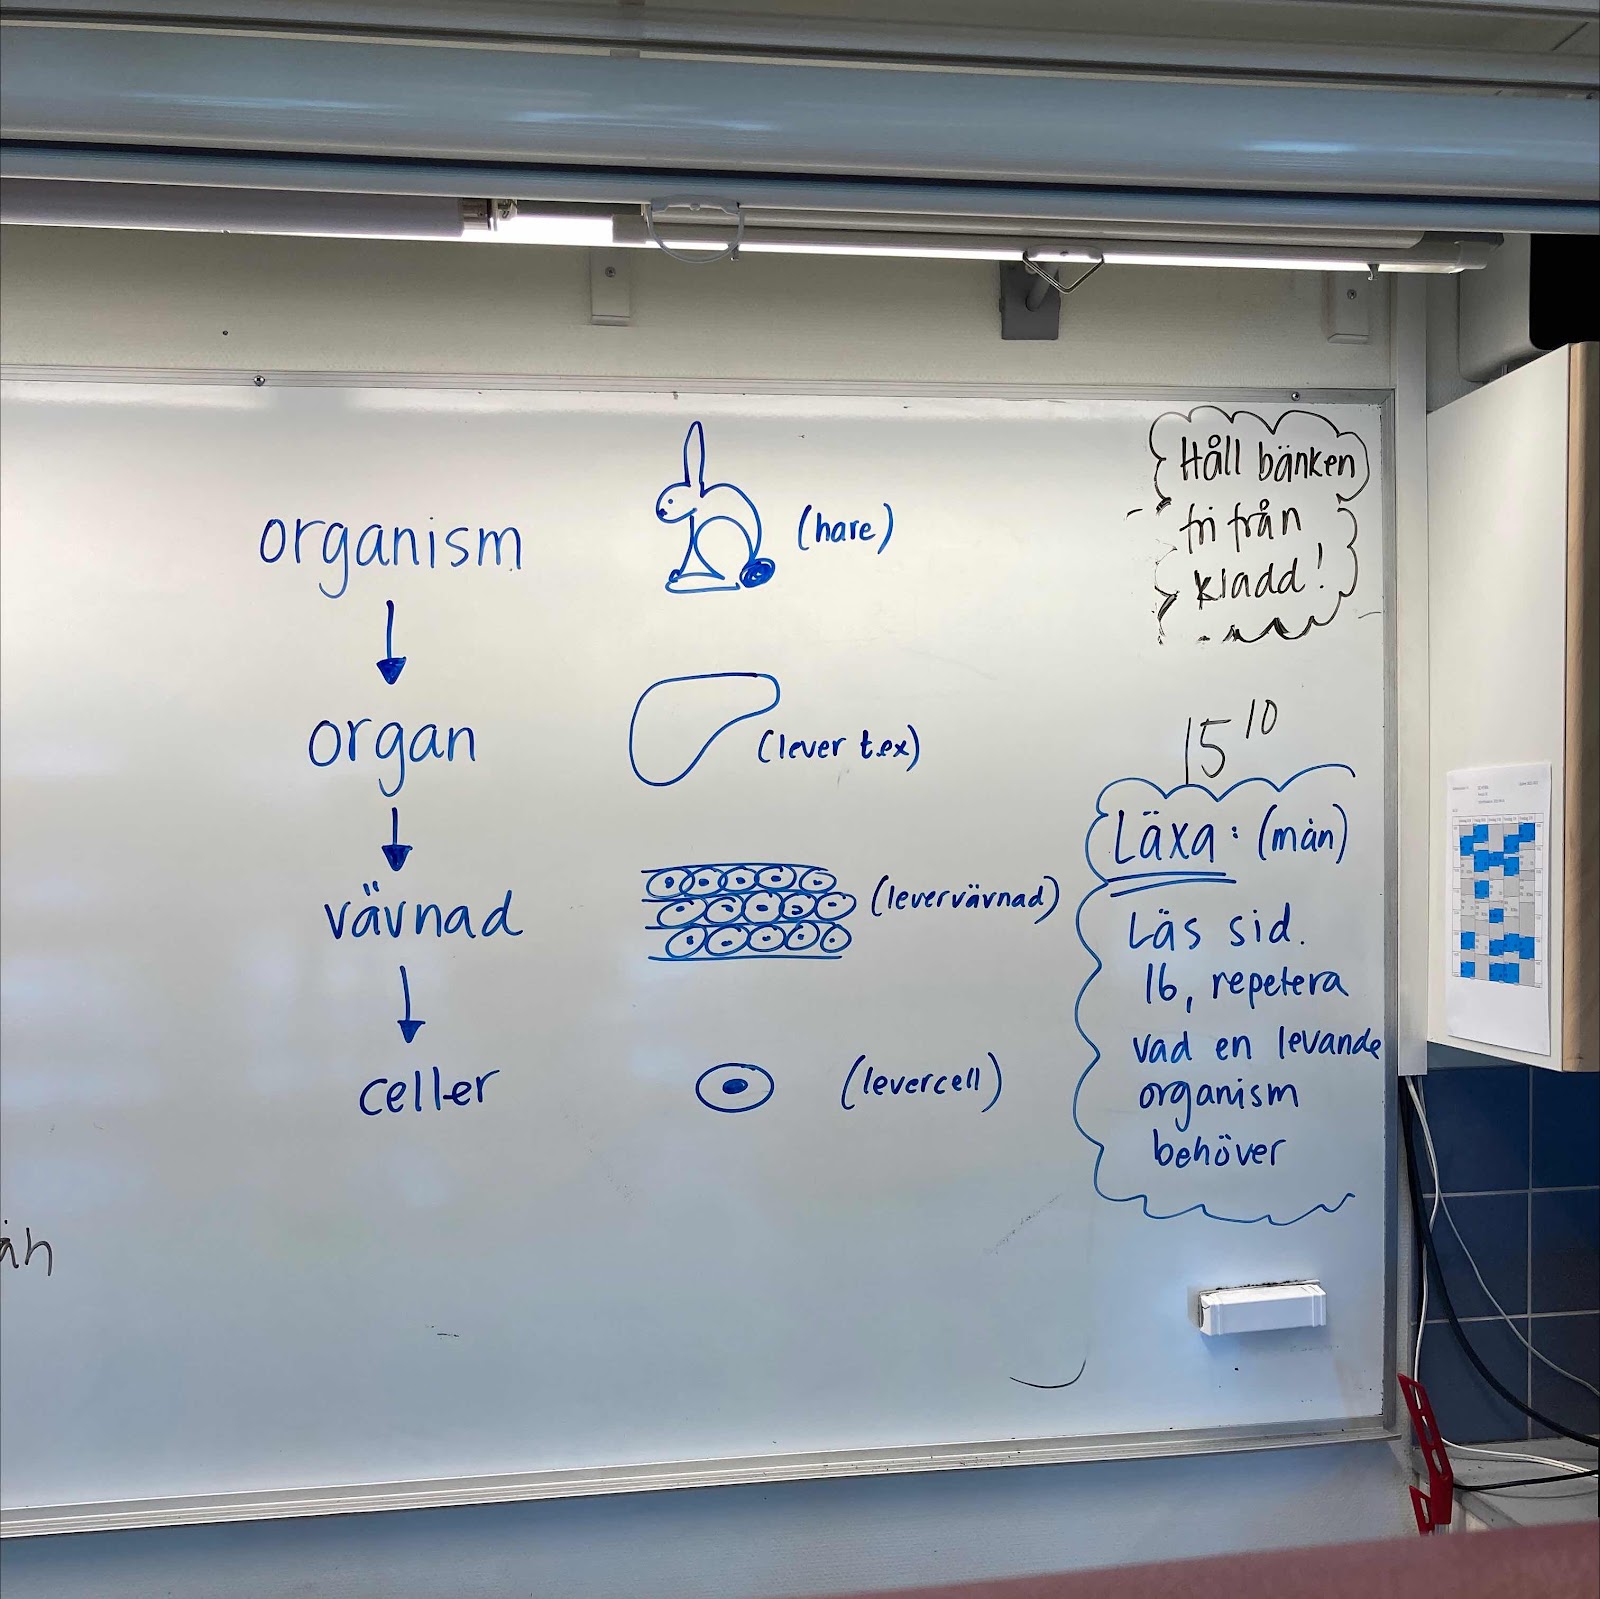 organism
(hare)
organ
(lever t.ex)
vävnad
(levervävnad)
celler
(levercell)
Håll bänken
fri från
kladd!
15 10
Läxa: (mån)
Läs sid.
16, repetera
vad en levande
organism
behöver